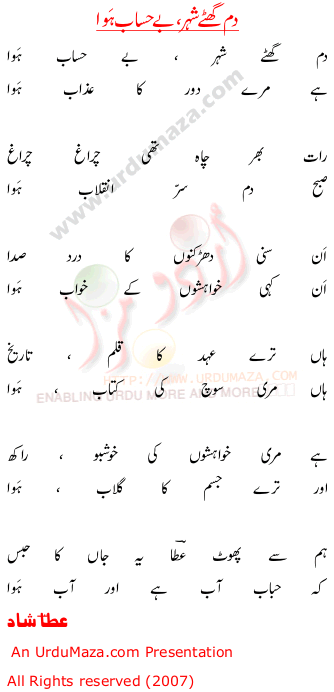 دم گھٹے شہر، بے حساب ہَوا
دم گھٹے شہر ، بے حساب ہَوا
ہے مرے دور کا عذاب ہَوا
رات بھر چاہ تھی چراغ چراغ
صبح دم سرِّ انقلاب ہَوا
اَن سنی دھڑکنوں کا درد صدا
اَن کہی خواہشوں کے خواب ہَوا
ہاں ترے عہد کا قلم ، تاریخ
ہاں مری سوچ کی کتاب ، ہَوا
ہے مری خواہشوں کی خوشبو ، راکھ
اور ترے جسم کا گلاب ، ہَوا
ہم سے پھوٹ عطاؔ یہ جاں کا حبس
کہ حباب آب ہے اور آب ہَوا
عطا شاد
An UrduMaza.com Presentation
All Rights reserved (2007)
www.urdumaza.com
اُردو مزا
HTTP://WWW.URDUMAZA.COM
ENABLING URDU MORE AND MORE